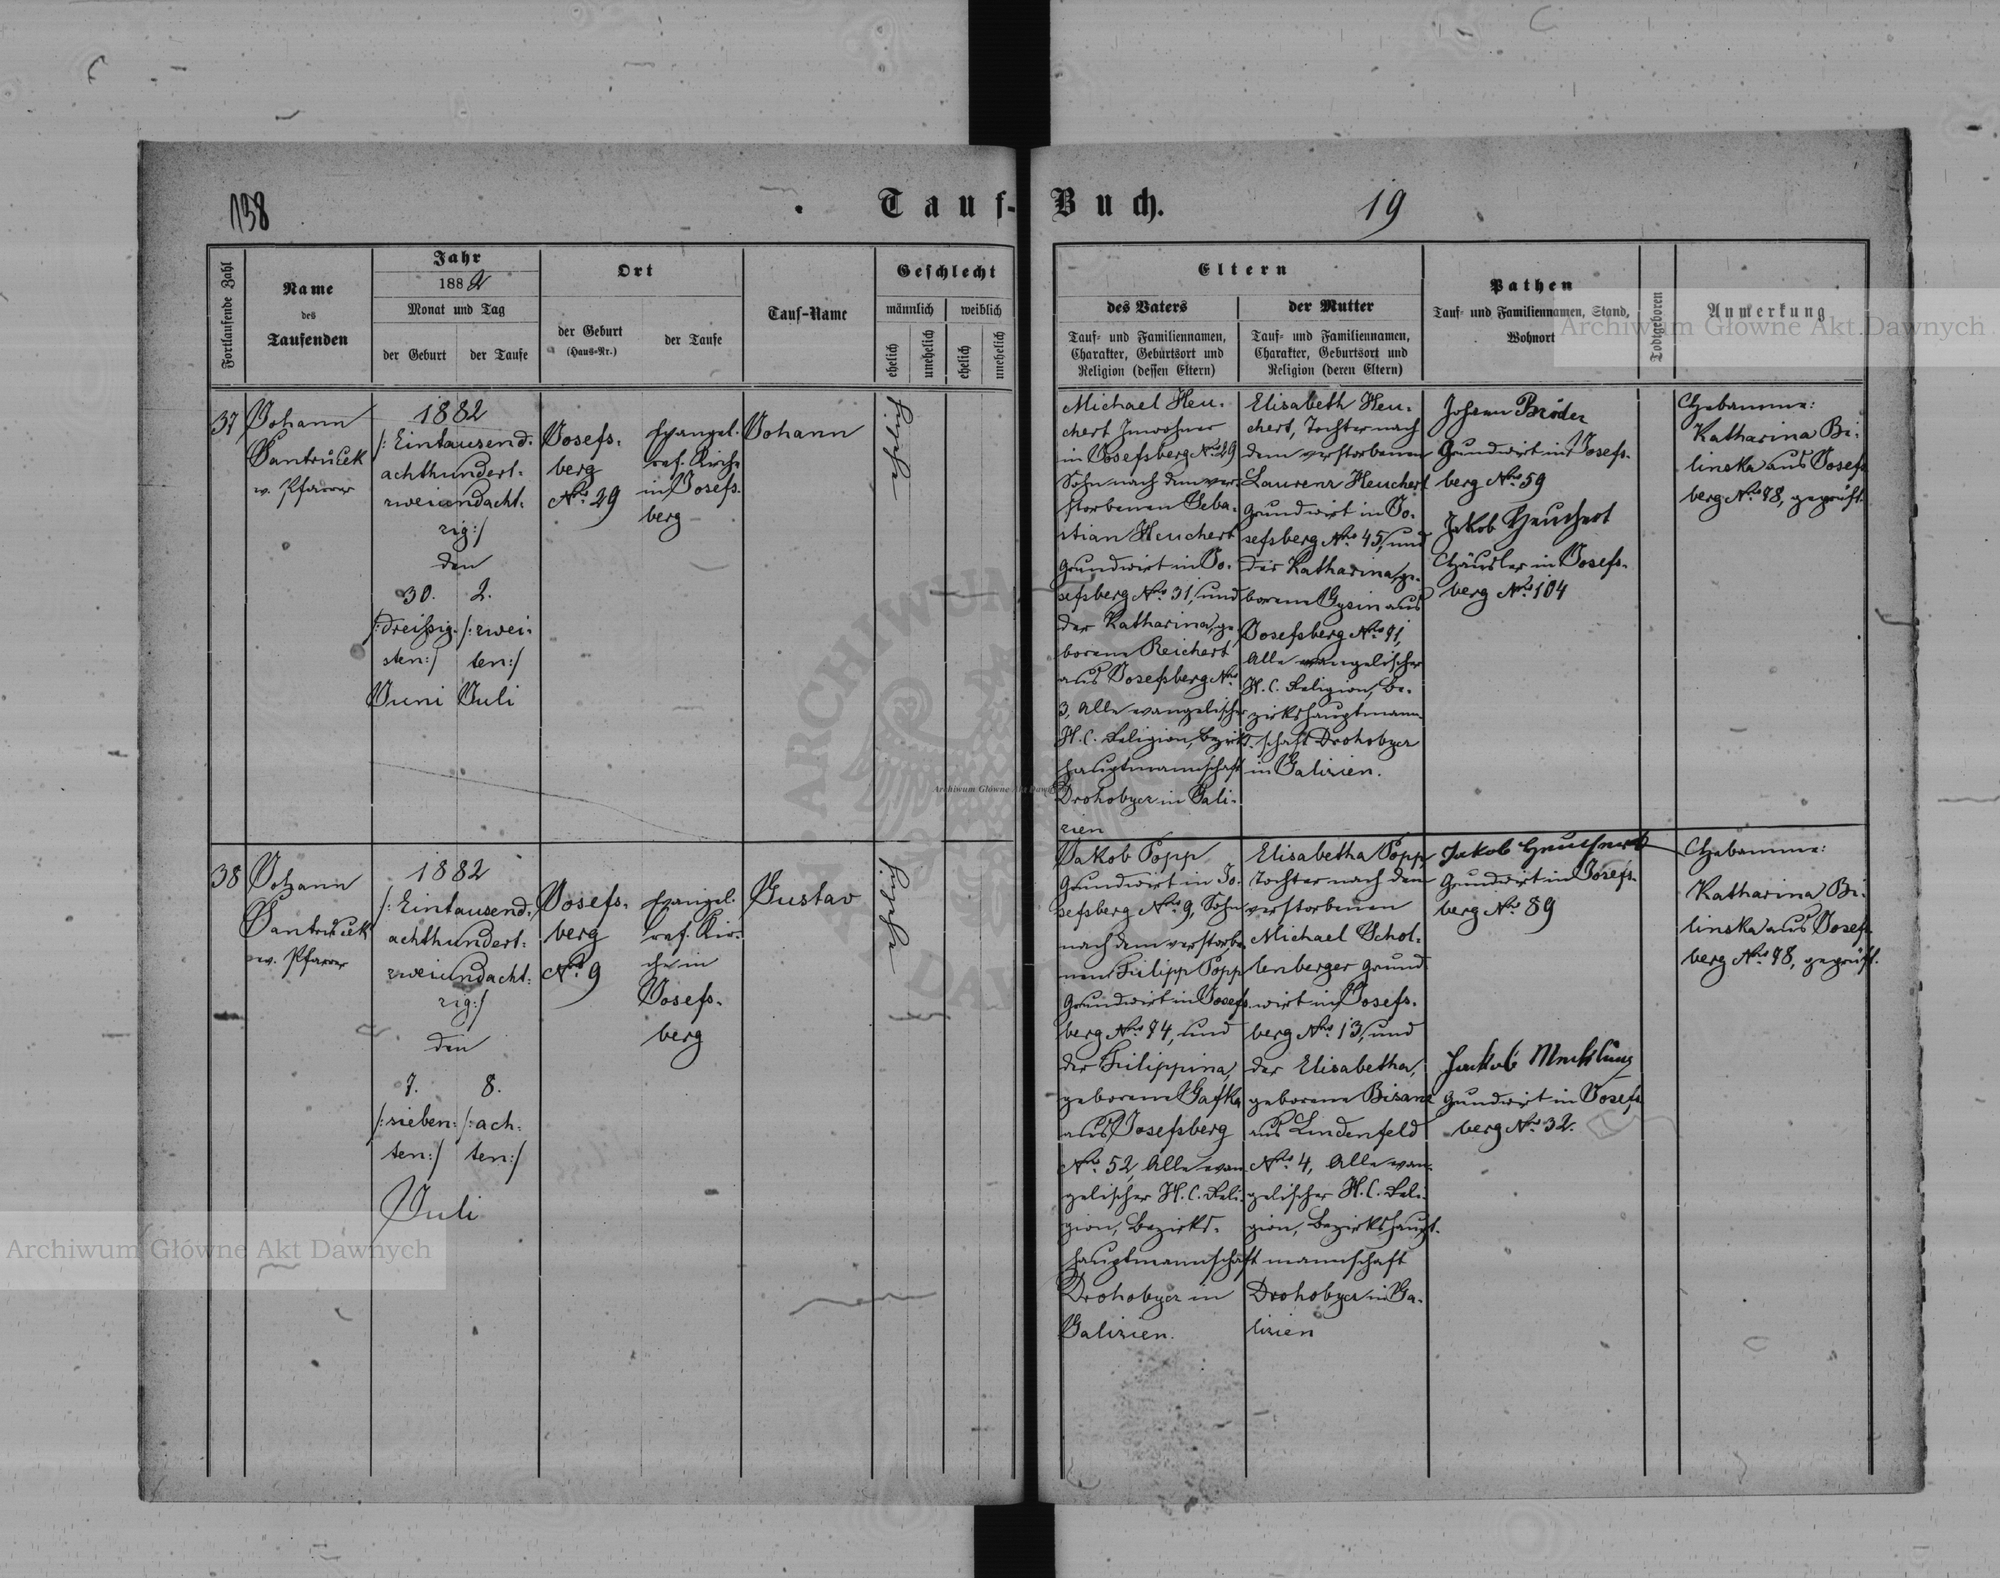 138
Tauf-Buch.
19
Fortlaufende Zahl
Name
des
Taufenden
Jahr
1882
Monat und Tag
der Geburt
der Taufe
Ort
der Geburt
(Haus-Nr.)
der Taufe
Tauf-Name
Geschlecht
männlich
weiblich
ehelich
unehelich
ehelich
unehelich
Eltern
des Vaters
Tauf- und Familiennamen,
Charakter, Geburtsort und
Religion (dessen Eltern)
der Mutter
Tauf- und Familiennamen,
Charakter, Geburtsort und
Religion (deren Eltern)
Pathen
Tauf- und Familiennamen, Stand,
Wohnort
Todtgeboren
Anmerkung
Archiwum Główne Akt Dawnych
37
Johann
Jantrücek
ev. Pfarrer
1882
/: Eintausend-
achthundert-
zweiundacht-
zig :/
den
30.
2.
/: dreißig-
sten :/
/: zwei-
ten :/
Juni
Juli
Josefs-
berg
Nro. 29
Evangel.
ref. Kirche
in Josefs-
berg
Johann
Michael Heu-
chert Inwohner
in Josefsberg Nro. 29
Sohn nach dem ver-
storbenen Seba-
stian Heuchert
Grundwirt in Jo-
sefsberg Nro. 31, und
der Katharina, ge-
borene Reichert
aus Josefsberg Nro.
3, Alle evangelischer
H. C. Religion, Bezirks-
hauptmannschaft
Drohobycz in Gali-
zien
Elisabeth Heu-
chert, Tochter nach
dem verstorbenen
Laurenz Heuchert
Grundwirt in Jo-
sefsberg Nro. 45, und
der Katharina, ge-
borene Gysin aus
Josefsberg Nro. 91,
Alle evangelischer
H. C. Religion, Be-
zirkshauptmann-
schaft Drohobycz
in Galizien.
Johann Bröder
Grundwirt in Josefs-
berg Nro. 59
Jakob Heuchert
Häusler in Josefs-
berg Nro. 104
Hebamme:
Katharina Bi-
linska aus Josefs-
berg Nro. 98, geprüft
38
Johann
Jantrücek
ev. Pfarrer
1882
/: Eintausend-
achthundert-
zweiundacht-
zig :/
den
7.
8.
/: sieben-
ten :/
/: ach-
ten :/
Juli
Josefs-
berg
Nro. 9
Evangel.
ref. Kir-
che in
Josefs-
berg
Gustav
Jakob Popp
Grundwirt in Jo-
sefsberg Nro. 9, Sohn
nach dem verstorbe-
nen Filipp Popp
Grundwirt in Josefs-
berg Nro. 94, und
der Filippina,
geborene Gafka
aus Josefsberg
Nro. 52, Alle evan-
gelischer H. C. Reli-
gion, Bezirks-
hauptmannschaft
Drohobycz in
Galizien.
Elisabetha Popp
Tochter nach dem
verstorbenen
Michael Schol-
lenberger Grund-
wirt in Josefs-
berg Nro. 13, und
der Elisabetha,
geborene Bisanz
aus Lindenfeld
Nro. 4, Alle evan-
gelischer H. C. Reli-
gion, Bezirkshaupt-
mannschaft
Drohobycz in Ga-
lizien
Jakob Heuchert
Grundwirt in Josefs-
berg Nro. 89
Jakob
Grundwirt in Josefs-
berg Nro. 32.
Hebamme:
Katharina Bi-
linska aus Josefs-
berg Nro. 98, geprüft.
Archiwum Główne Akt Dawnych
Archiwum Główne Akt Dawnych